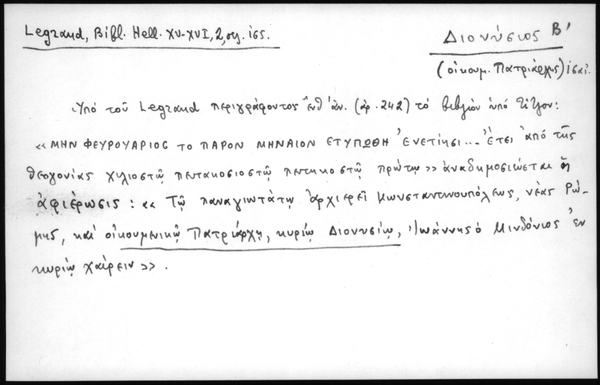 Legrand, Bibl. Hell. XV-XVI, 2, σελ. ις.
Διονύσιος Β'
(οἰκουμ. Πατριάρχης)
Ὑπὸ τοῦ Legrand περιγράφοντος ἐνθ' ἀν. (ἀρ. 242) τὸ βιβλίον ὑπὸ τίτλον:
« ΜΗΝ ΦΕΥΡΟΥΑΡΙΟΣ ΤΟ ΠΑΡΟΝ ΜΗΝΑΙΟΝ ΕΤΥΠΩΘΗ Ἐνετίησι... Ἔτει ἀπὸ τῆς
θεογονίας χιλιοστῷ πεντακοσιοστῷ πεντηκοστῷ πρώτῳ » ἀναδημοσιεύεται ἡ
ἀφιέρωσις : « Τῷ παναγιωτάτῳ ἀρχιερεῖ Κωνσταντινουπόλεως, νέας Ρώ-
μης, καὶ οἰκουμενικῷ Πατριάρχῃ, κυρίῳ Διονυσίῳ, Ἰωάννης ὁ Μινδόνιος ἐν
κυρίῳ χαίρειν » .